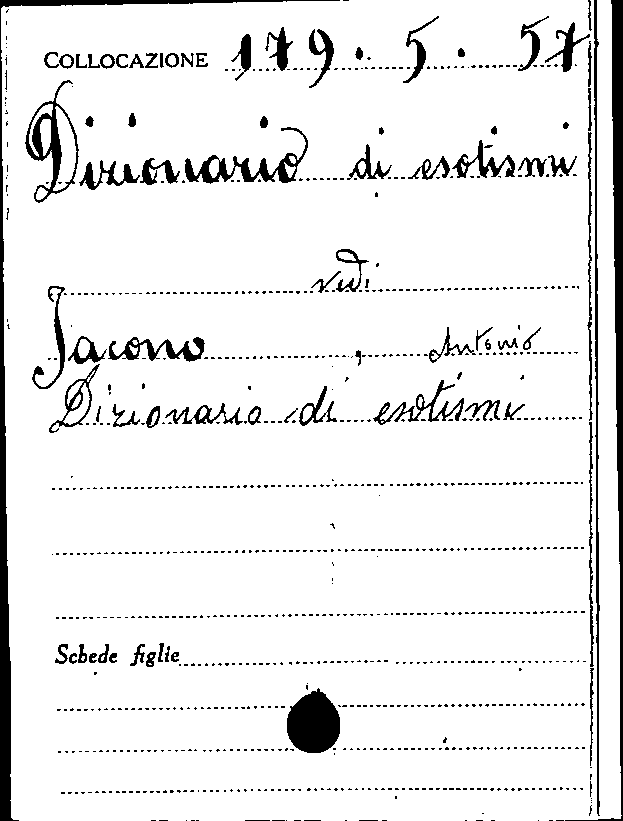 COLLOCAZIONE 179. 5. 57
Dizionario di esotismi
vedi
Jacono, Antonio
Dizionario di esotismi
Schede figlie